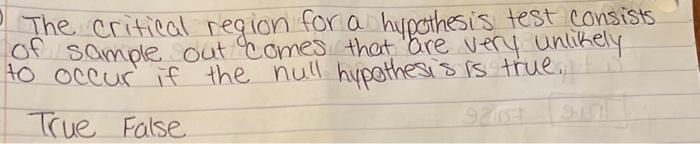 The critical region for a hypothesis test consists
of sample out comes that are very unlikely
to occur if the null hypothesis is true.
True False